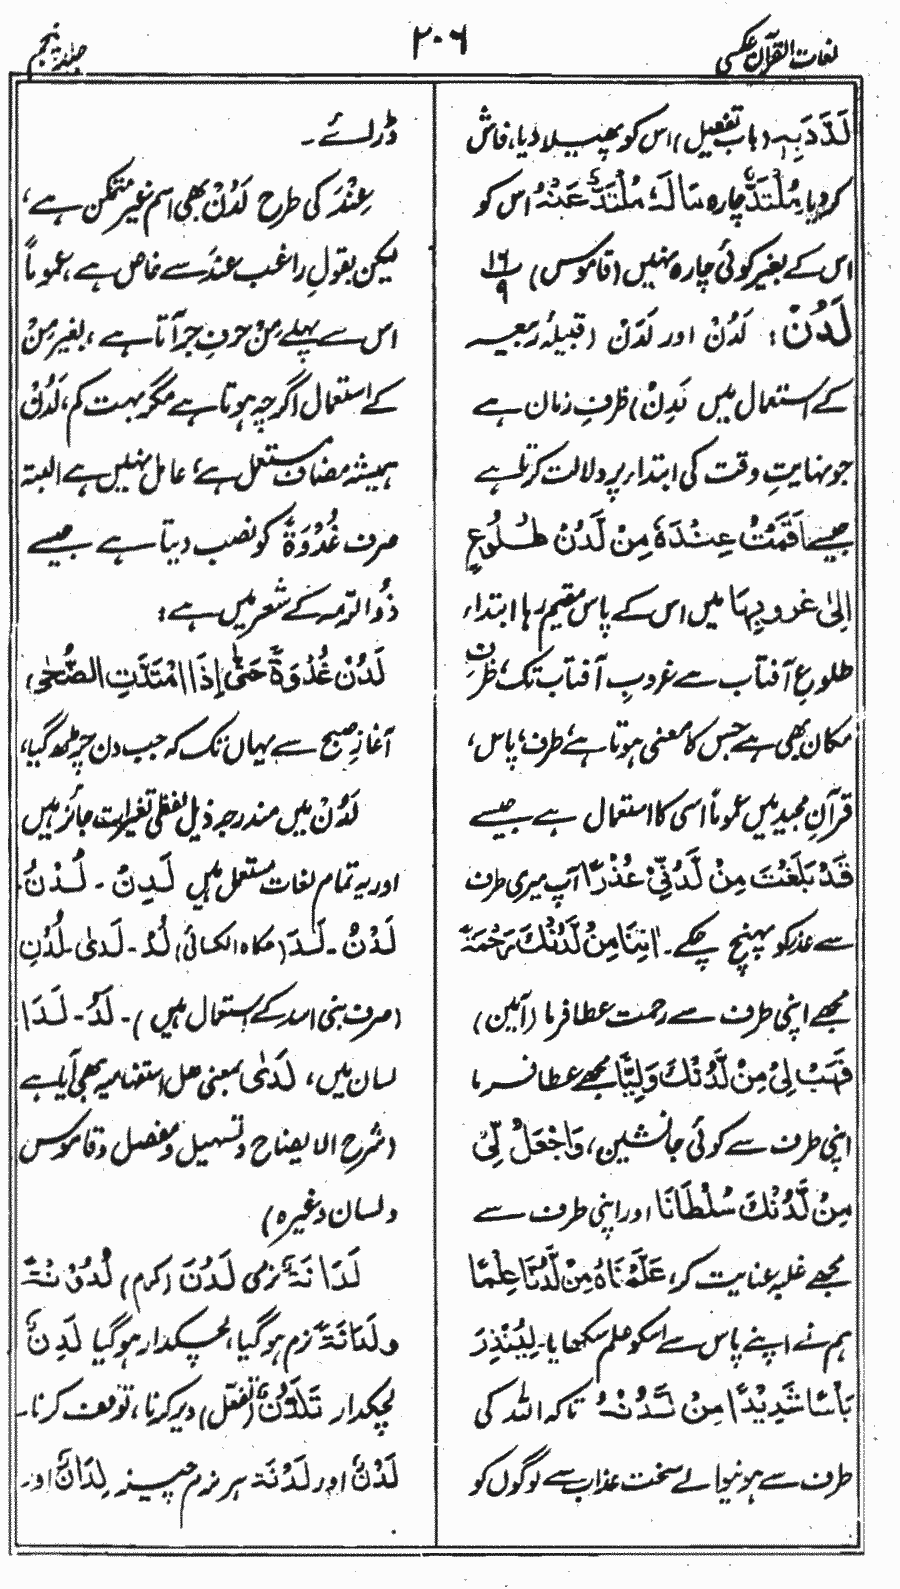 لغات القرآن عکسی
۲۰۶
جلد پنجم
لَدَّدَ بِهٖ (باب تفعیل) اس کو پھیلا دیا، فاش
کر دیا مُلْتَدٌّ چارہ مَا لَهٗ مُلْتَدٌّ عَنْهُ اس کو
اس کے بغیر کوئی چارہ نہیں (قاموس) ۱۶/۹
لَدُنْ: لَدُنْ اور لَدَنْ (قبیلہ ربیعہ
کے استعمال میں لَدِنْ) ظرفِ زمان ہے
جو نہایتِ وقت کی ابتداء پر دلالت کرتا ہے
جیسے اَقَمْتُ عِنْدَهٗ مِنْ لَدُنْ طُلُوْعِ
اِلیٰ غروبِهَا میں اس کے پاس مقیم رہا ابتداء
طلوع آفتاب سے غروبِ آفتاب تک، ظرفِ
مکان بھی ہے جس کا معنی ہوتا ہے طرف، پاس،
قرآنِ مجید میں عموماً اسی کا استعمال ہے جیسے
قَدْ بَلَغْتَ مِنْ لَّدُنِّيْ عُذْرًا آپ میری طرف
سے عذر کو پہنچ چکے۔ اٰتِنَا مِنْ لَّدُنْكَ رَحْمَةً
مجھے اپنی طرف سے رحمت عطا فرما (آمین)
فَهَبْ لِيْ مِنْ لَّدُنْكَ وَلِيًّا مجھے عطا فرما
اپنی طرف سے کوئی جانشین، وَاجْعَلْ لِّيْ
مِنْ لَّدُنْكَ سُلْطَانًا اور اپنی طرف سے
مجھے غلبہ عنایت کر، عَلَّمْنَاهُ مِنْ لَّدُنَّا عِلْمًا
ہم نے اپنے پاس سے اسکو علم سکھایا۔ لِيُنْذِرَ
بَأْسًا شَدِيْدًا مِنْ لَّدُنْهُ تاکہ اللہ کی
طرف سے ہونیوالے سخت عذاب سے لوگوں کو
ڈرائے۔
عِنْدَ کی طرح لَدُنْ بھی اسم غیر متمکن ہے،
لیکن بقولِ راغب عندَ سے خاص ہے، عموماً
اس سے پہلے مِنْ حرفِ جر آتا ہے، بغیر مِنْ
کے استعمال اگرچہ ہوتا ہے مگر بہت کم، لَدُنْ
ہمیشہ مضاف مستعمل ہے، عامل نہیں ہے البتہ
صرف غُدْوَةً کو نصب دیتا ہے جیسے
ذُوالرّمہ کے شعر میں ہے:
لَدُنْ غُدْوَةً حَتّٰى اِذَا امْتَدَّتِ الضُّحٰى)
آغازِ صبح سے یہاں تک کہ جب دن چڑھ گیا،
لَدُنْ میں مندرجہ ذیل لفظی تغیرات جائز ہیں
اور یہ تمام لغات مستعمل ہیں لَدِنْ - لُدْنُ
لَدْنُ - لَدَ (حکاہ الکسائی) لُدْ - لَدیٰ - لُدْنِ
(صرف بنی اسد کے استعمال میں) - لَدُ - لَدَا
لسان میں، لَدٰى بمعنی ھل استفہامیہ بھی آیا ہے
(شرح الایضاح و تسہیل و مفصل و قاموس
و لسان وغیرہ)
لَدَانَةٌ نرمی لَدُنَ (کرم) لُدُنْ نَةً
و لَدَانَةً نرم ہوگیا، لچکدار ہوگیا لَدِنٌ
لچکدار تَلَدُّنٌ (تفعّل) دیر کرنا، توقف کرنا۔
لَدْنٌ اور لَدْنَة ہر نرم چیز لِدَانٌ اور